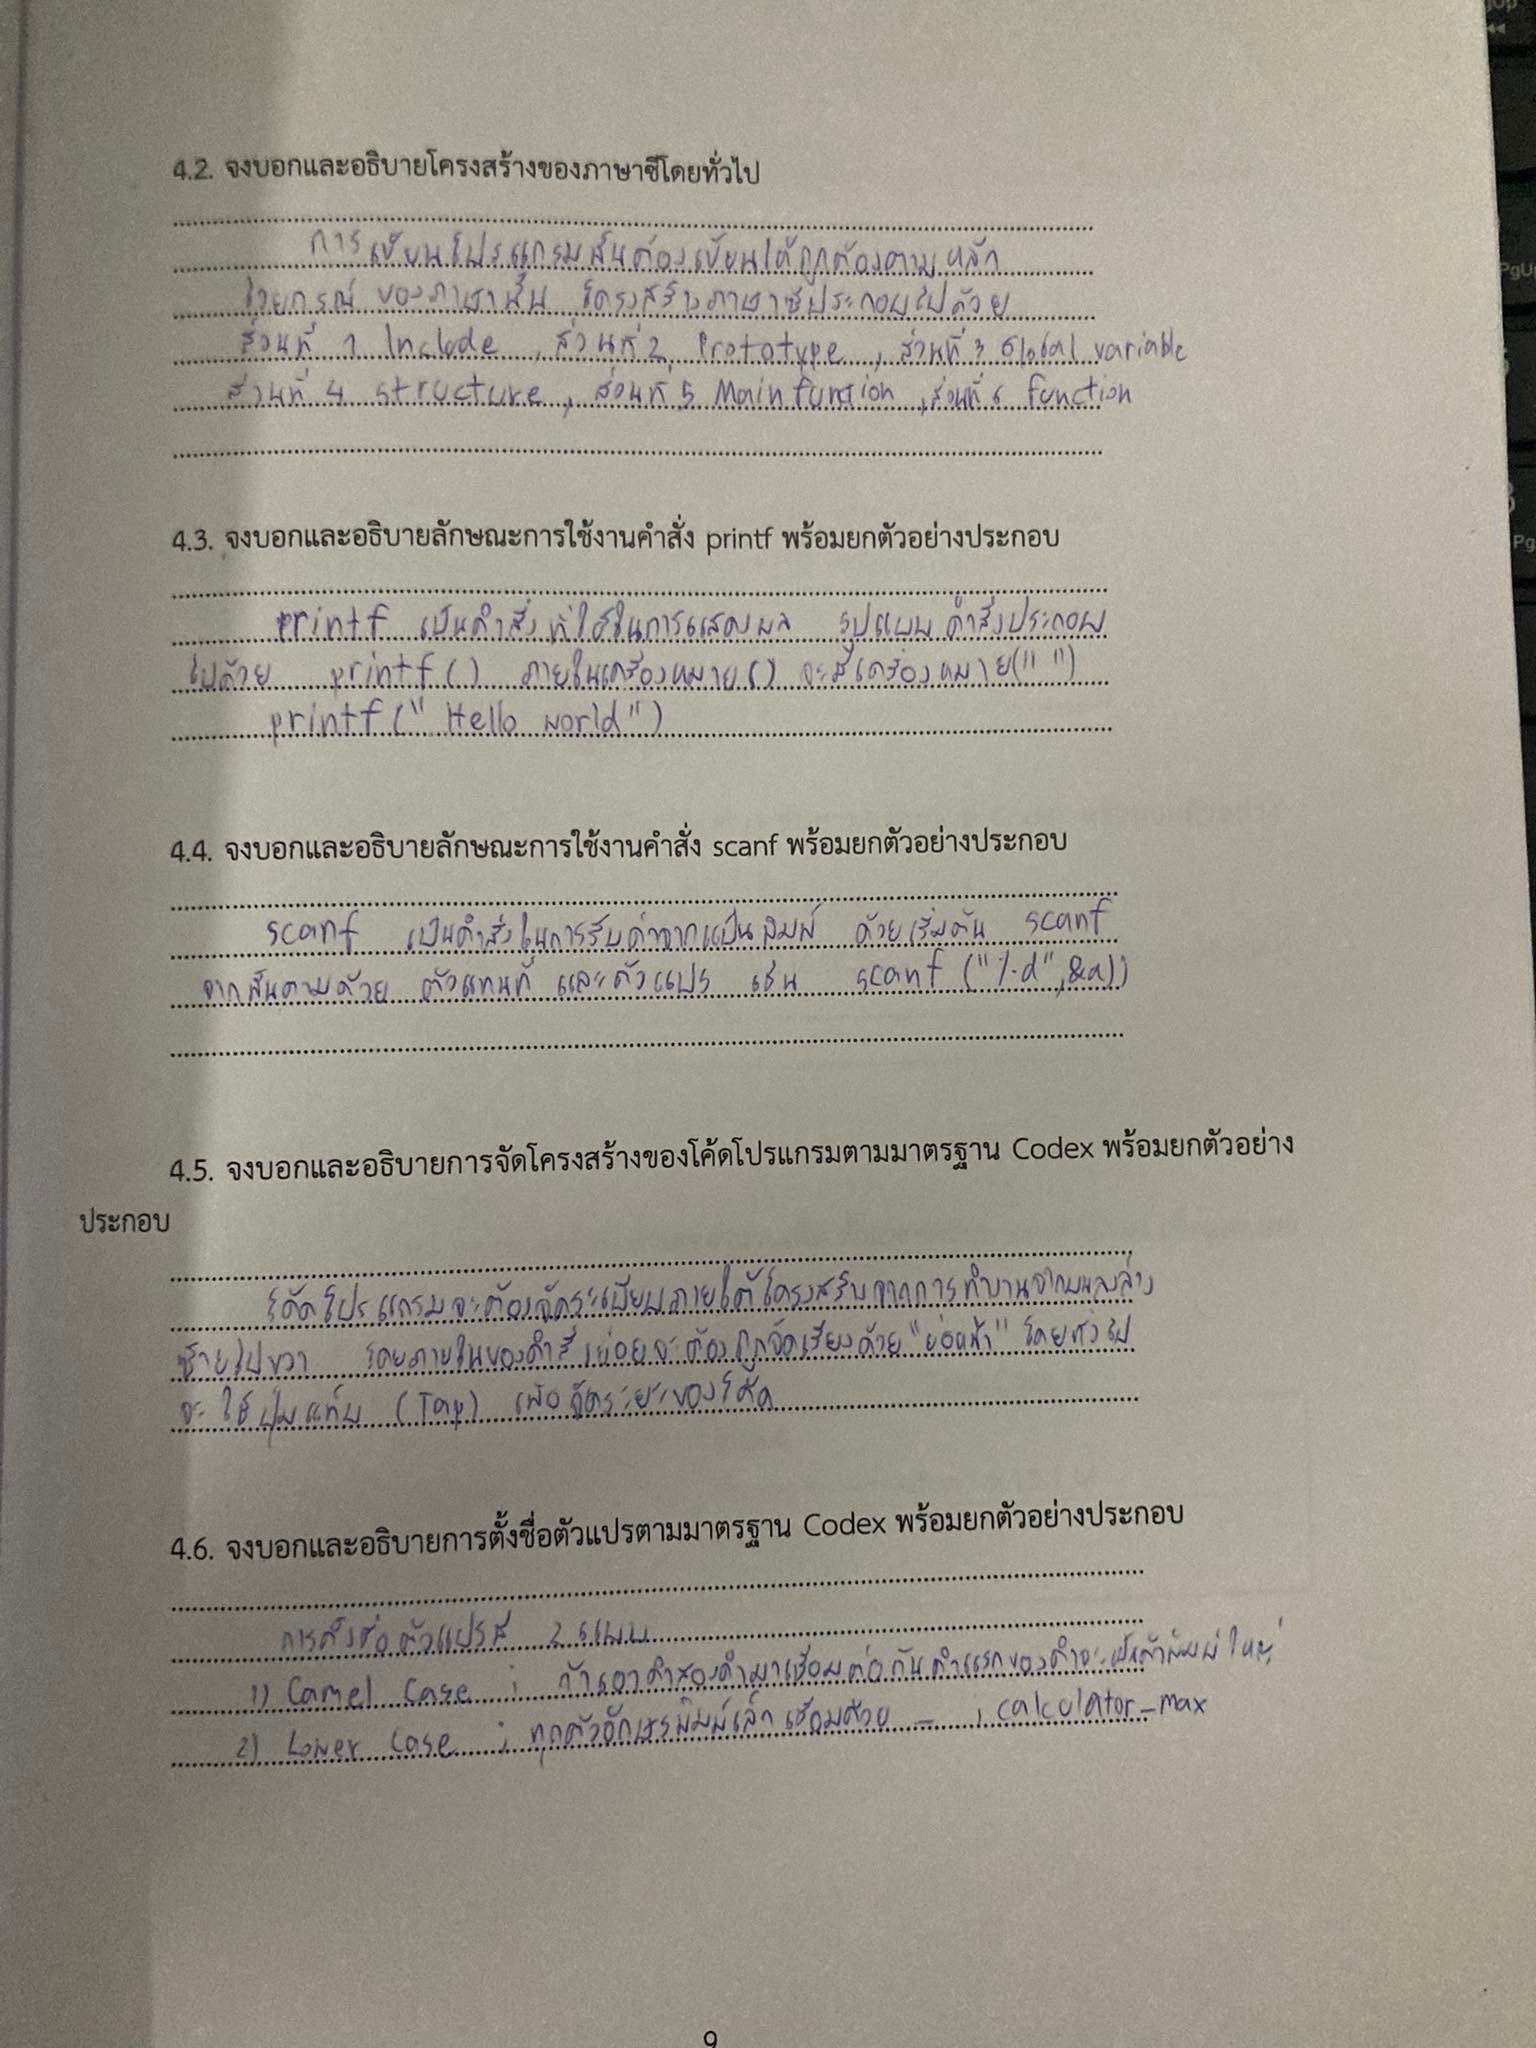 4.2. จงบอกและอธิบายโครงสร้างของภาษาซีโดยทั่วไป
การเขียนโปรแกรมนั้นต้องเขียนให้ถูกต้องตามหลัก
ไวยกรณ์ ของภาษานั้น โครงสร้างภาษาซีประกอบไปด้วย
ส่วนที่ 1 Include , ส่วนที่ 2 Prototype , ส่วนที่ 3 Global variable
ส่วนที่ 4 structure , ส่วนที่ 5 Main function , ส่วนที่ 6 function
4.3. จงบอกและอธิบายลักษณะการใช้งานคำสั่ง printf พร้อมยกตัวอย่างประกอบ
printf เป็นคำสั่งที่ใช้ในการแสดงผล รูปแบบคำสั่งประกอบ
ไปด้วย printf ( ) ภายในเครื่องหมาย ( ) จะมีเครื่องหมาย (" ")
printf (" Hello world")
4.4. จงบอกและอธิบายลักษณะการใช้งานคำสั่ง scanf พร้อมยกตัวอย่างประกอบ
scanf เป็นคำสั่งในการรับค่าจากแป้นพิมพ์ ด้วยเริ่มต้น scanf
จากนั้นตามด้วย ตัวแทนที่ และตัวแปร เช่น scanf ("%d",&a);
4.5. จงบอกและอธิบายการจัดโครงสร้างของโค้ดโปรแกรมตามมาตรฐาน Codex พร้อมยกตัวอย่าง
ประกอบ
โค้ดโปรแกรมจะต้องจัดระเบียบภายใต้โครงสร้าง จากการทำงานจากบนลงล่าง
ซ้ายไปขวา โดยภายในของคำสั่งย่อยจะต้องถูกจัดเรียงด้วย "ย่อหน้า" โดยทั่วไป
จะใช้ปุ่มแท็บ (Tap) เพื่อจัดระยะของโค้ด
4.6. จงบอกและอธิบายการตั้งชื่อตัวแปรตามมาตรฐาน Codex พร้อมยกตัวอย่างประกอบ
การตั้งชื่อตัวแปรมี 2 แบบ
1) Camel Case ; ถ้าเอาคำสองคำมาเชื่อมต่อกันคำแรกของคำจะเป็นตัวพิมพ์ใหญ่
2) Lower Case ; ทุกตัวอักษรพิมพ์เล็ก เชื่อมด้วย _ ; calculator_max
9